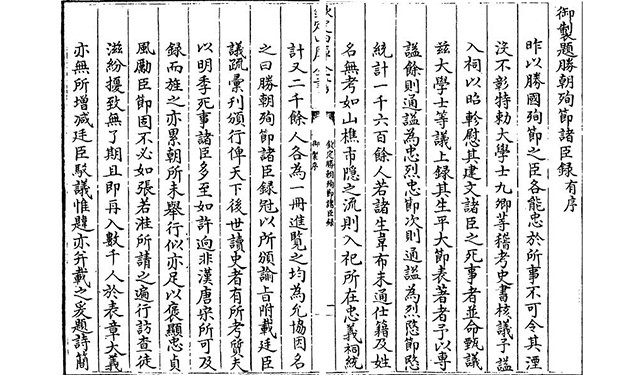 御製題勝朝殉節諸臣錄有序
昨以勝國殉節之臣各能忠於所事不可令其湮
沒不彰特勅大學士九卿等稽考史書核議予謚
入祠以昭軫慰其建文諸臣之死事者並命甄議
茲大學士等議上錄其生平大節表著者予以專
謚餘則通謚為忠烈忠節次則通謚為烈愍節愍
統計一千六百餘人若諸生韋布未通仕籍及姓
名無考如山樵市隐之流則入祀所在忠義祠統
欽定勝朝殉節諸臣錄
御製序
計又二千餘人各為一冊進覽之均為允協因名
之曰勝朝殉節諸臣錄冠以所頒諭旨附載廷臣
議疏彙刊頒行俾天下後世讀史者有所考質夫
以明季死事諸臣多至如許迥非漢唐宋所可及
錄而旌之亦累朝所未舉行似亦足以褒顯忠貞
風勵臣節固不必如張若溎所請之遍行訪查徒
滋紛擾致無了期且即再入數千人於表章大義
亦無所增減廷臣駁議惟韙亦并載之爰題詩簡